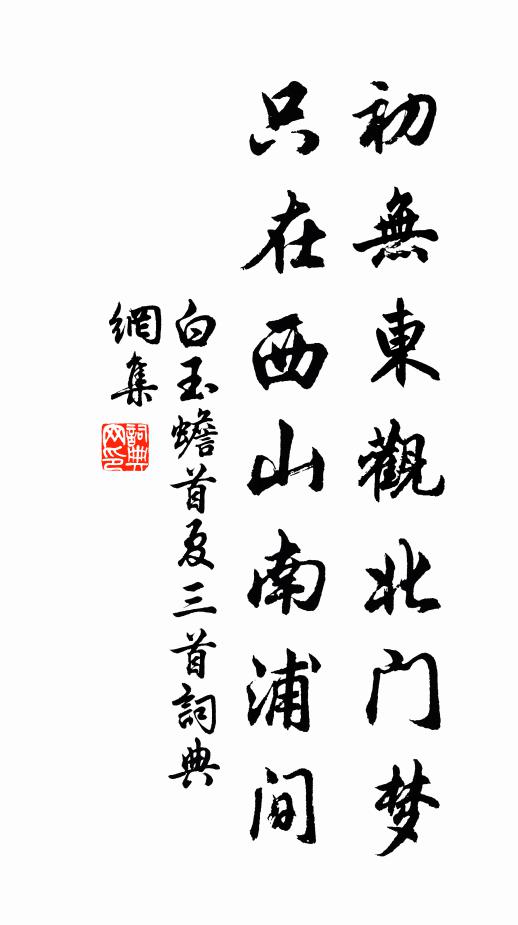 初無東觀北门梦
只在西山南浦间
白玉蟾首夏三首詞典
網集
詞典网印